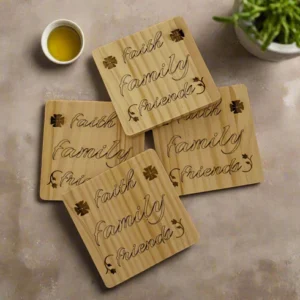 Faith
Family
Friends
Faith
Family
Fri
Faith
Family
Friends
Faith
Family
Friends